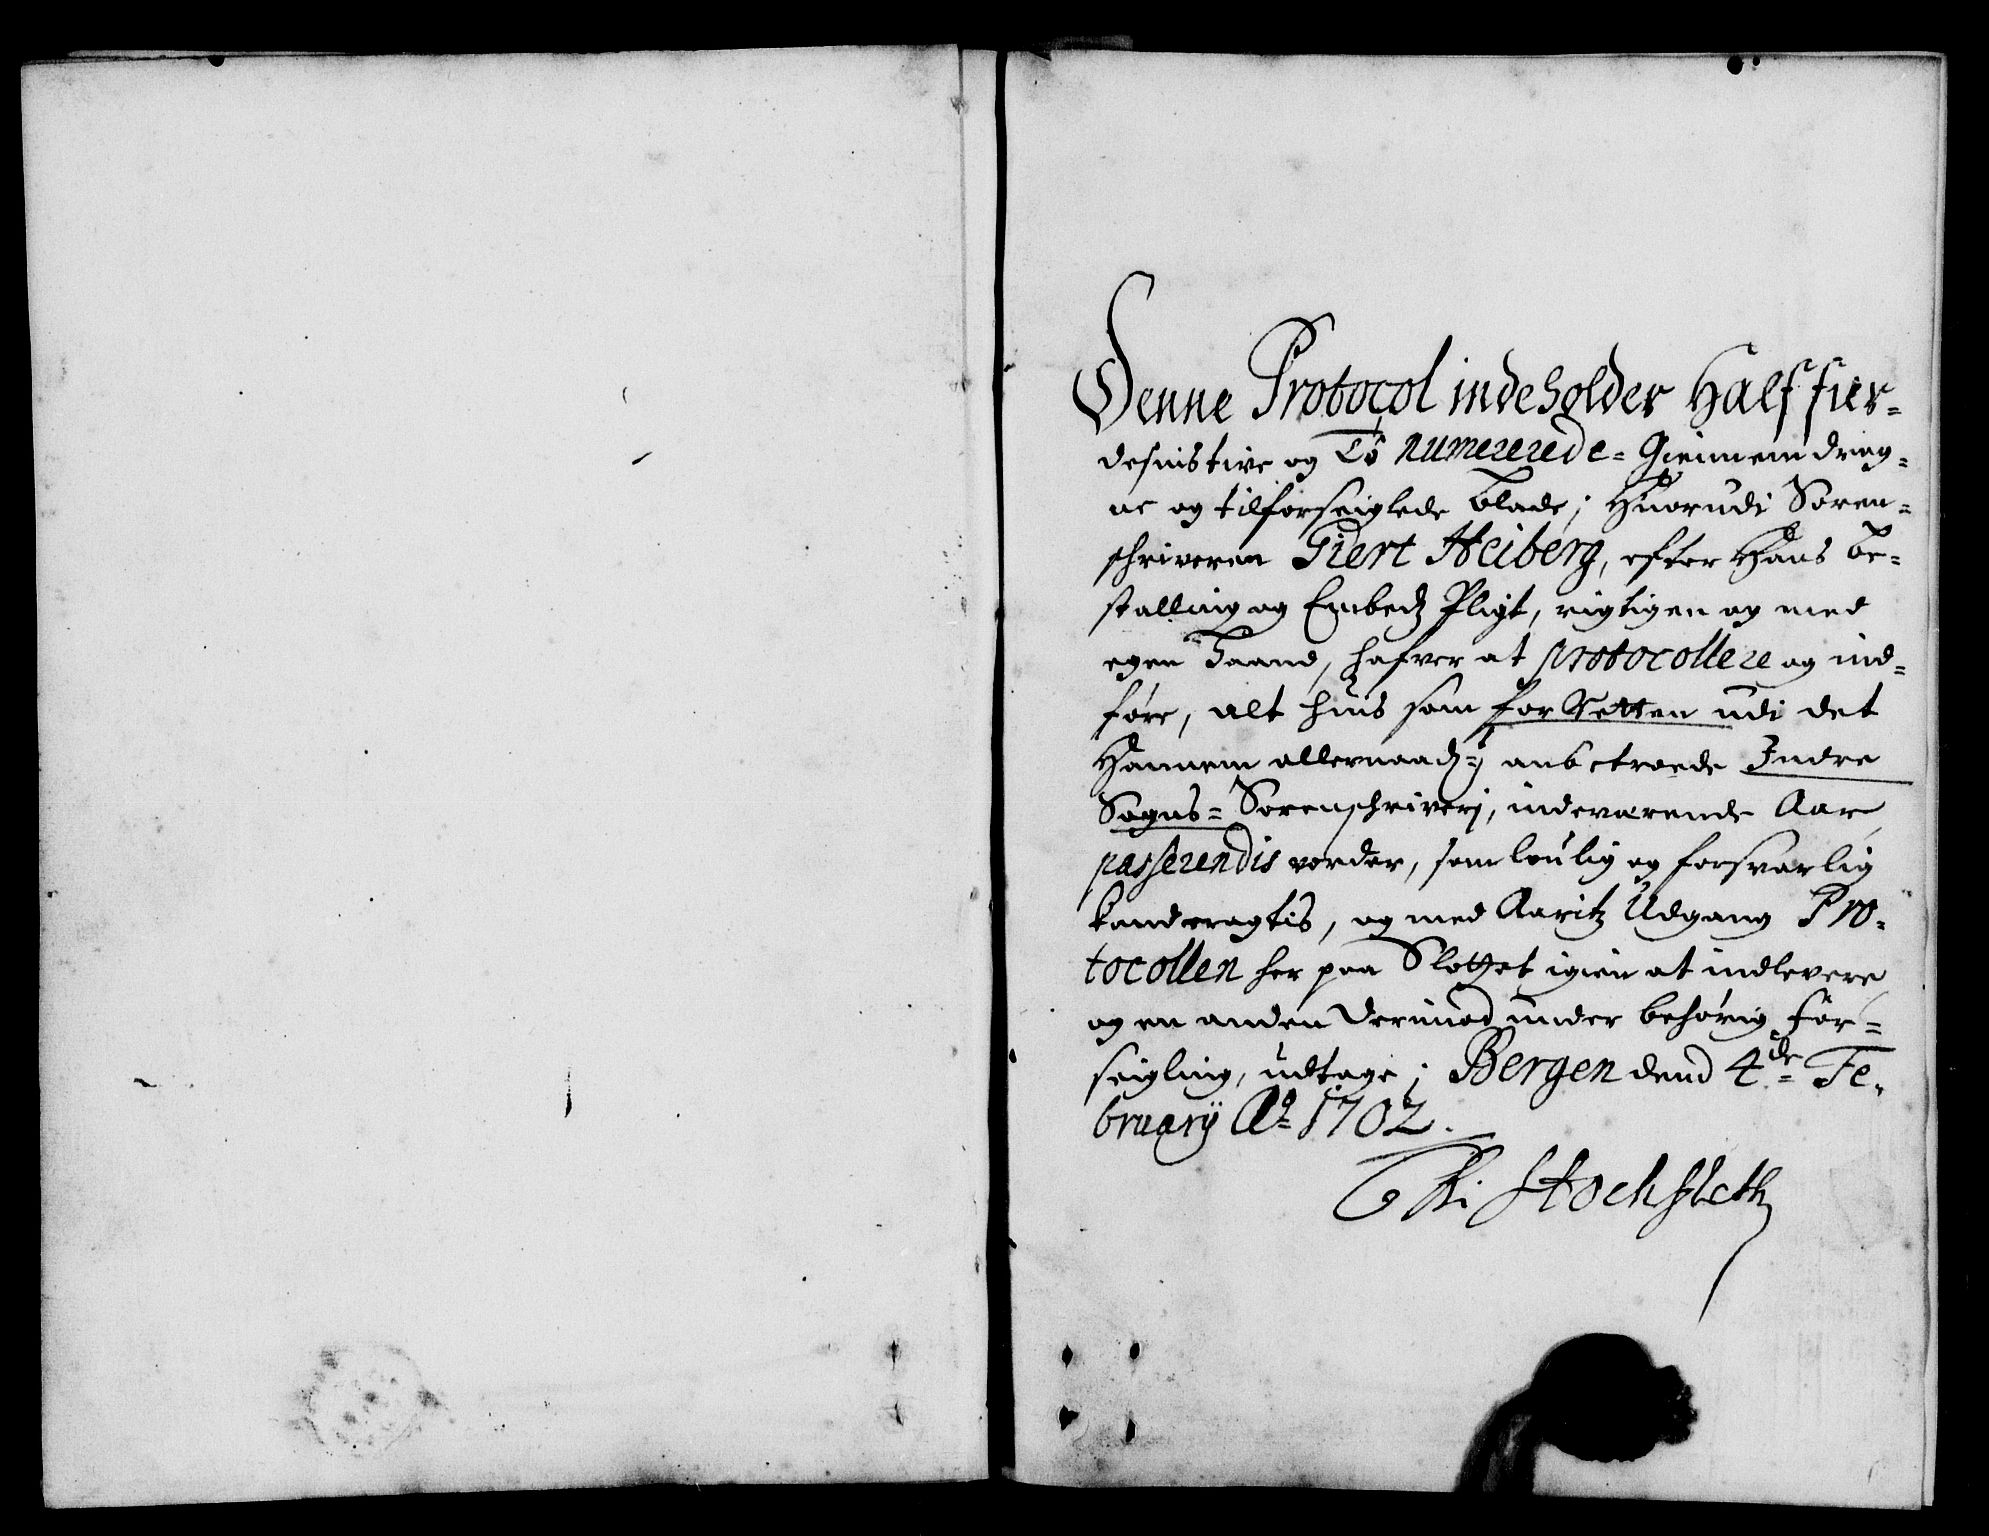 Denne Protocol indeholder Half fier-
desinstive og To numererede- Giennemdrag-
ne og tilforseiglede blade; Huorudi Soren-
schriveren Giert Heiberg, efter Hans be-
stalling og Embedz Pligt, rigtigen og med
egen Haand, hafver at protocollere og ind-
føre, alt huis som for Retten udi det
Hannem allernaadj: anbetroede Indre
Sogns- Sorenschriverj, indeværende Aar
passerendis vorder, som loulig og forsvarlig
kand eragtis, og med Aaritz Udgang Pro-
tocollen her paa Slottet igien at indlevere
og en anden derimod under behørig for-
seigling, udtage; Bergen dend 4de Fe-
bruarij Ao 1702.
Chr: Stockfleth